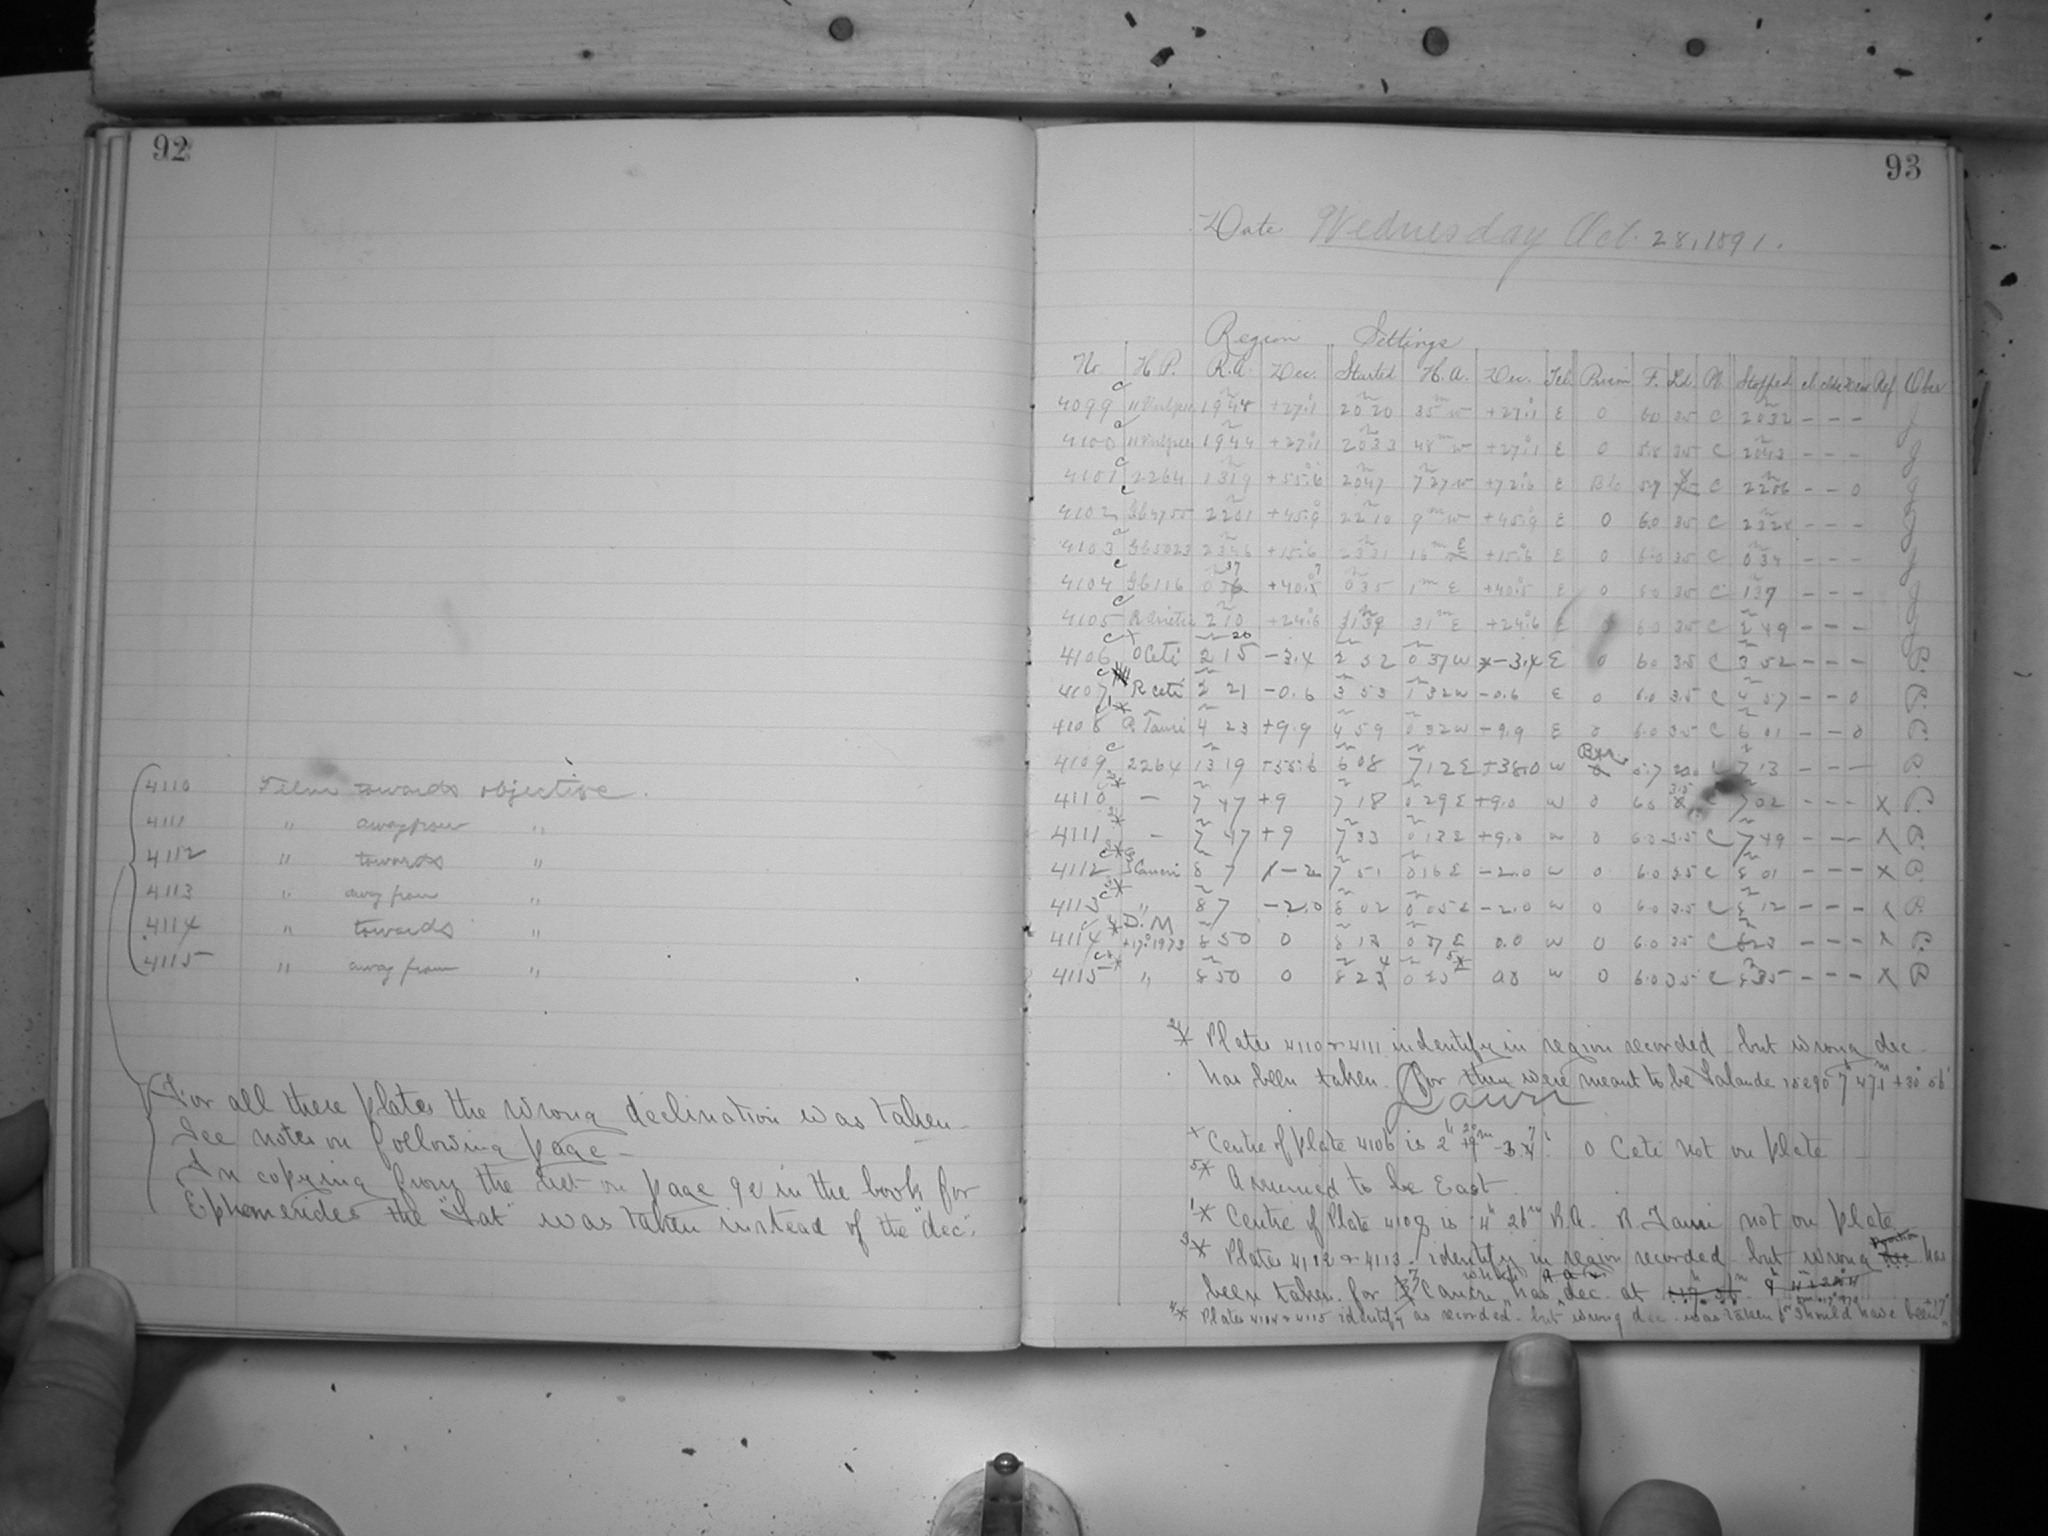 92
4110 Film towards objective.
4111 " away from "
4112 " towards "
4113 " away from "
4114 " towards "
4115 " away from "
For all these plates the wrong declination was taken
See notes on following page
In copying from the list on page 92 in the book for
Ephemerides the "Lat" was taken instead of the "dec".
93
Date Wednesday Oct. 28, 1891.
Region Settings
Nr. H.P. R.A. Dec. Started H.A. Dec. Tel. Prism F. Ld. Pl. Stopped Ref. Obsr
4099 11 Vulpec 19 44 +27.1 20 20 35m w +27.1 E 0 6.0 35 C 20 32 – – – J
4100 11 Vulpec 19 44 +27.1 20 33 48m w +27.1 E 0 5.8 35 C 20 43 – – – J
4101 2264 13 19 +55.6 20 47 7 27 w +72.6 E 5.9 C 22 06 – – 0 J
4102 G64755 22 01 +45.9 22 10 9m w +45.9 E 0 6.0 35 C 23 28 – – – J
4103 G65023 23 46 +15.6 23 31 16m E +15.6 E 0 6.0 35 C 0 34 – – – J
4104 G6116 0 36 37 +40.5 7 0 35 1m E +40.5 E 0 6.0 35 C 1 37 – – – J
4105 2 10 +24.6 1 39 31m E +24.6 E 0 6.0 35 C 2 49 – – – J
4106 O Ceti 2 15 20 –3.4 2 52 0 37 w –3.4 E 0 6.0 3.5 C 3 52 – – – P.
4107 R Ceti 2 21 –0.6 3 53 1 32 w –0.6 E 0 6.0 3.5 C 4 57 – – 0 P.
4108 R Tauri 4 23 +9.9 4 59 0 32 w +9.9 E 0 6.0 3.5 C 6 01 – – 0 P.
4109 2264 13 19 +55.6 6 08 7 12 E +38.0 w 5.7 20.0 7 13 – – – P.
4110 – 7 47 +9 7 18 0 29 E +9.0 w 0 6.0 3.5 C 7 02 – – – X P.
4111 – 7 47 +9 7 33 0 13 E +9.0 w 0 6.0 3.5 C 7 49 – – – X P.
4112 Cancri 8 7 –2 7 51 0 16 E –2.0 w 0 6.0 3.5 C 8 01 – – – X P.
4113 " 8 7 –2.0 8 02 0 05 E –2.0 w 0 6.0 3.5 C 8 12 – – – X P.
4114 D.M +17° 1973 8 50 0 8 13 0 37 E 0.0 w 0 6.0 3.5 C 8 23 – – – X P.
4115 " 8 50 0 8 23 4 0 25 0.0 w 0 6.0 3.5 C 8 35 – – – X P.
2* Plates 4110 & 4111 indentify in region recorded but wrong dec
has been taken. For they were meant to be Lalande 15290 7h 47.1m +30° 56'
Dawn
x Centre of plate 4106 is 2h 20m –3.7 O Ceti not on plate
5* Assumed to be East.
1* Centre of Plate 4108 is 4h 26m R.A. R. Tauri not on plate
3* Plates 4112 & 4113 identify in region recorded but wrong position has
been taken for Cancri which has dec. at
4* Plates 4114 & 4115 identify as recorded but wrong dec. was taken & should have been +17°